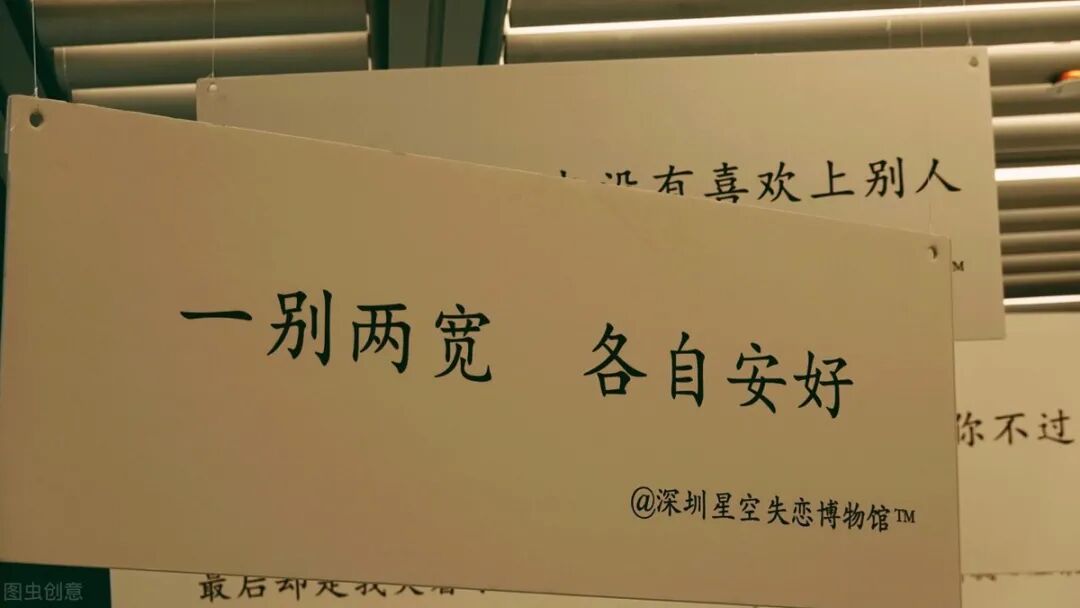 没有喜欢上别人
一别两宽 各自安好
你不过
@深圳星空失恋博物馆™
最后却是我
图虫创意